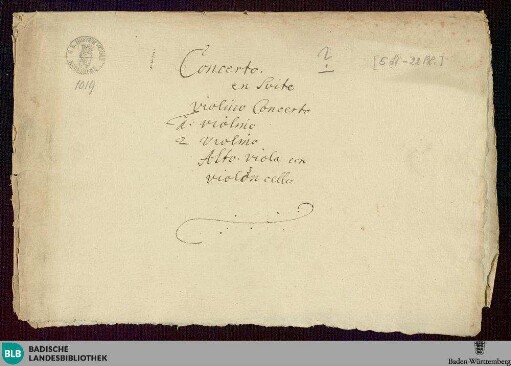 1019
2
[5 St - 22 Bl.]
Concerto.
en Svite
violino Concerto
1. violino
2 violino
Alto. viola con
violoncello
BLB BADISCHE
LANDESBIBLIOTHEK
Baden-Württemberg